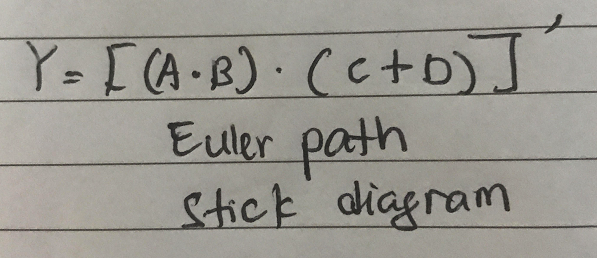 Y = [(A·B)·(C+D)]'
Euler path
Stick diagram